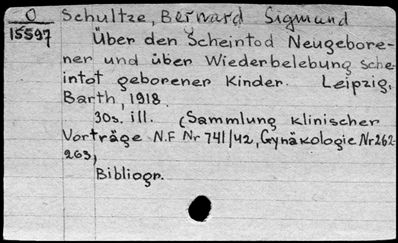 O Schultze, Bernard Sigmund
15597 Über den Scheintod Neugebore-
ner und über Wiederbelebung sche-
intot geborener Kinder. Leipzig,
Barth, 1918.
30s. ill. (Sammlung klinischer
Vorträge N.F Nr 741/42, Gynäkologie Nr 262-
263)
Bibliogr.